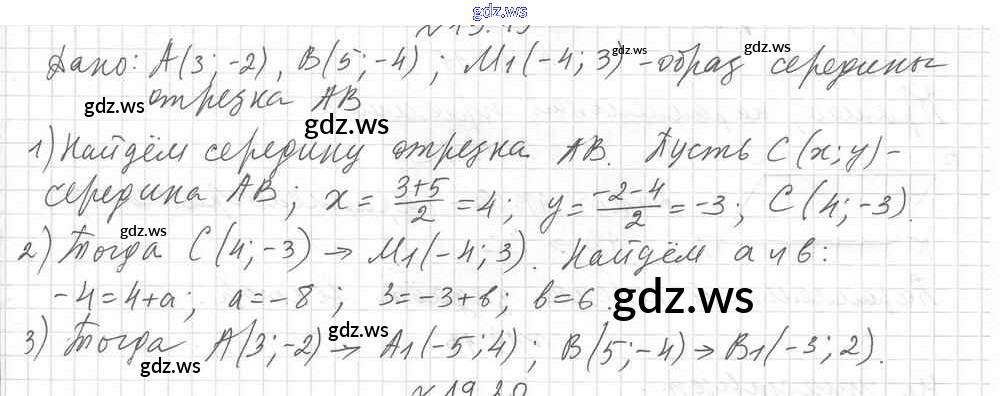 gdz.ws
№19.19
Дано: A(3; -2), B(5; -4); M1(-4; 3) - образ середины
отрезка AB
1) Найдём середину отрезка AB. Пусть C(x; y) -
середина AB; x = 3+5/2 = 4; y = -2-4/2 = -3; C(4; -3).
2) Тогда C(4; -3) → M1(-4; 3). Найдём a и в:
-4=4+a; a=-8; 3=-3+в; в=6.
3) Тогда A(3; -2) → A1(-5; 4); B(5; -4) → B1(-3; 2).
№19.20
gdz.ws
gdz.ws
gdz.ws
gdz.ws
gdz.ws
gdz.ws
gdz.ws
gdz.ws